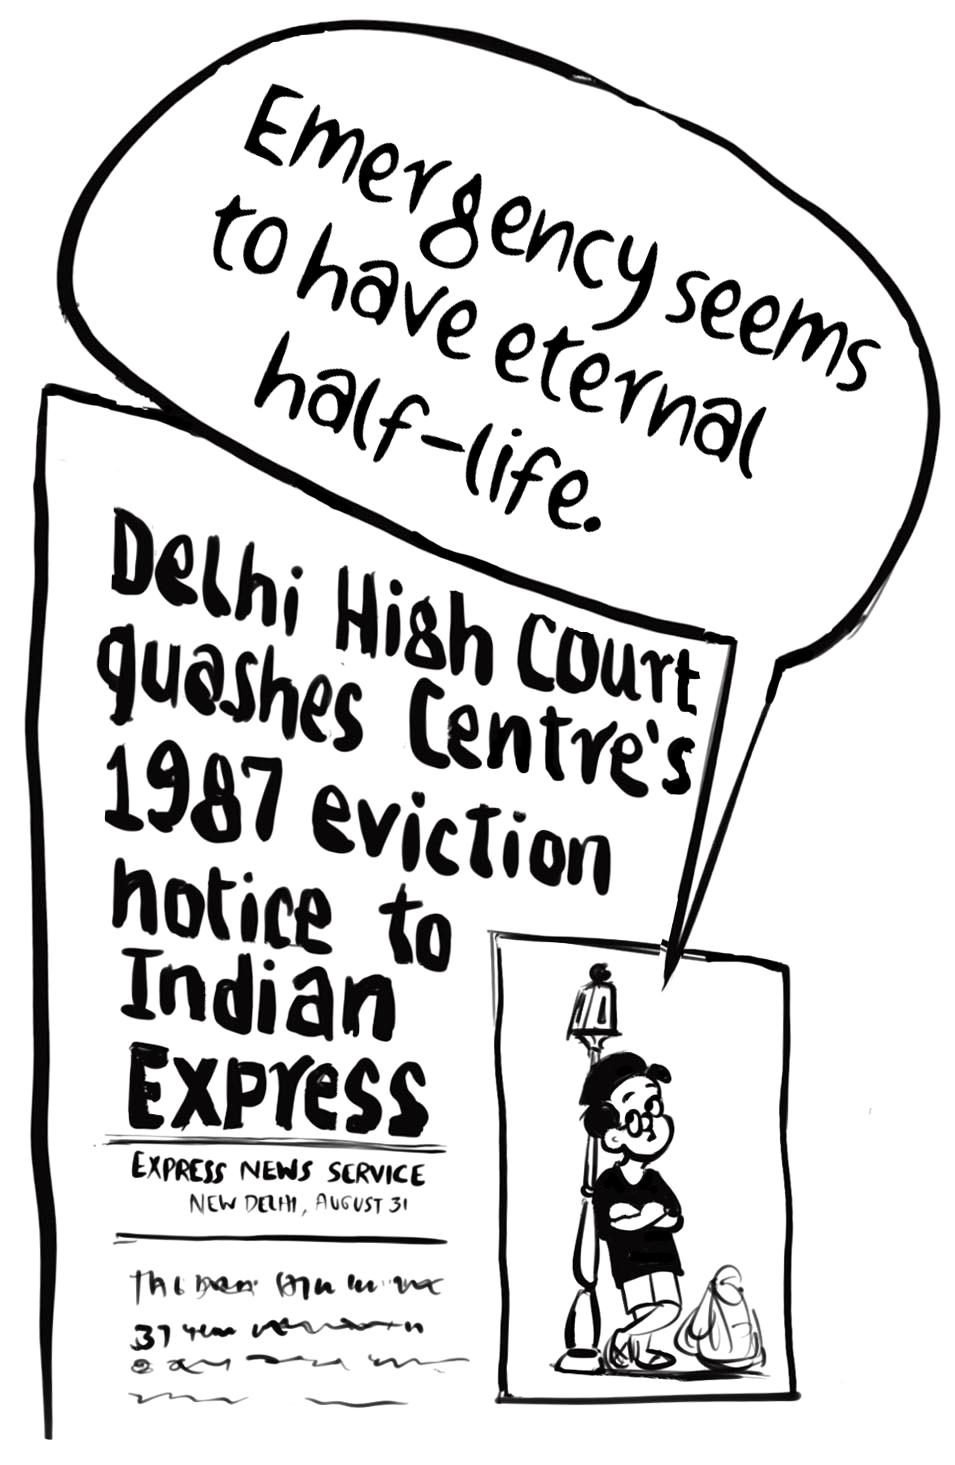 Emergency seems
to have eternal
half-life.
Delhi High Court
quashes Centre's
1987 eviction
notice to
Indian
Express
EXPRESS NEWS SERVICE
NEW DELHI, AUGUST 31
37